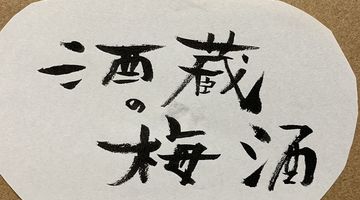 酒蔵
の梅酒